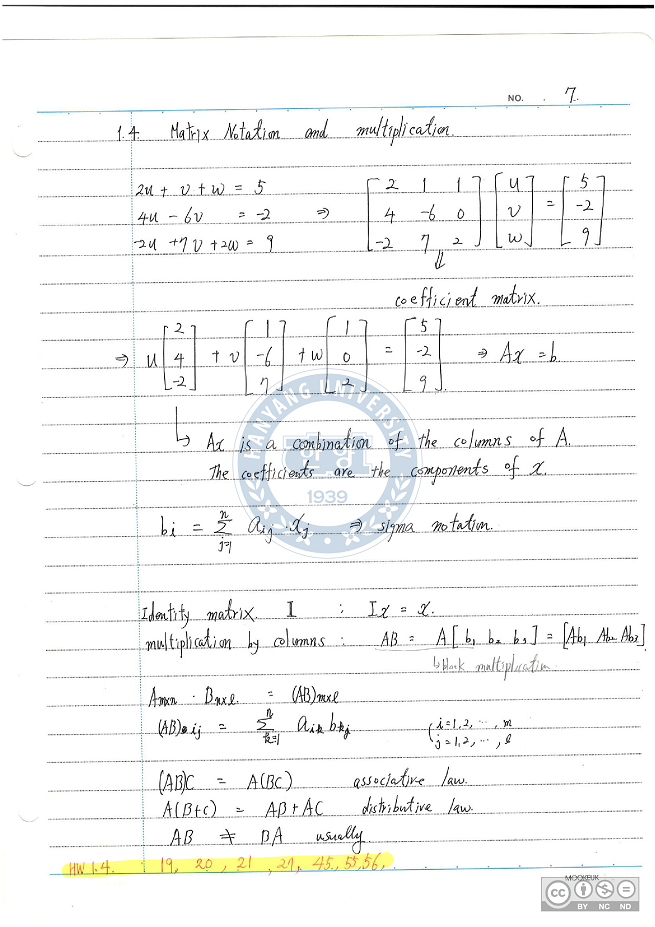 NO. . 7.
1.4. Matrix Notation and multiplication.
2u + v + w = 5
4u - 6v = -2
-2u +7v +2w = 9
⇒ [2 1 1; 4 -6 0; -2 7 2] [u; v; w] = [5; -2; 9]
⇓
coefficient matrix.
⇒ u [2; 4; -2] + v [1; -6; 7] + w [1; 0; 2] = [5; -2; 9] ⇒ Ax = b
HANYANG UNIVERSITY
1939
↳ Ax is a conbination of the columns of A.
The coefficients are the components of x.
bi = Σ_{j=1}^{n} aij xj ⇒ sigma notation.
Identity matrix. I : Ix = x.
multiplication by columns : AB = A[b1 b2 b3] = [Ab1 Ab2 Ab3]
↳ block multiplication
Amxn · Bnxl = (AB)mxl
(AB)ij = Σ_{k=1}^{n} aik bkj ( i=1,2, ⋯, m
j=1,2, ⋯, l
(AB)C = A(BC) associative law.
A(B+C) = AB + AC distributive law.
AB ≠ BA usually
HW 1.4. : 19, 20, 21, 27, 45, 55, 56,
MOOKEUK
cc BY NC ND